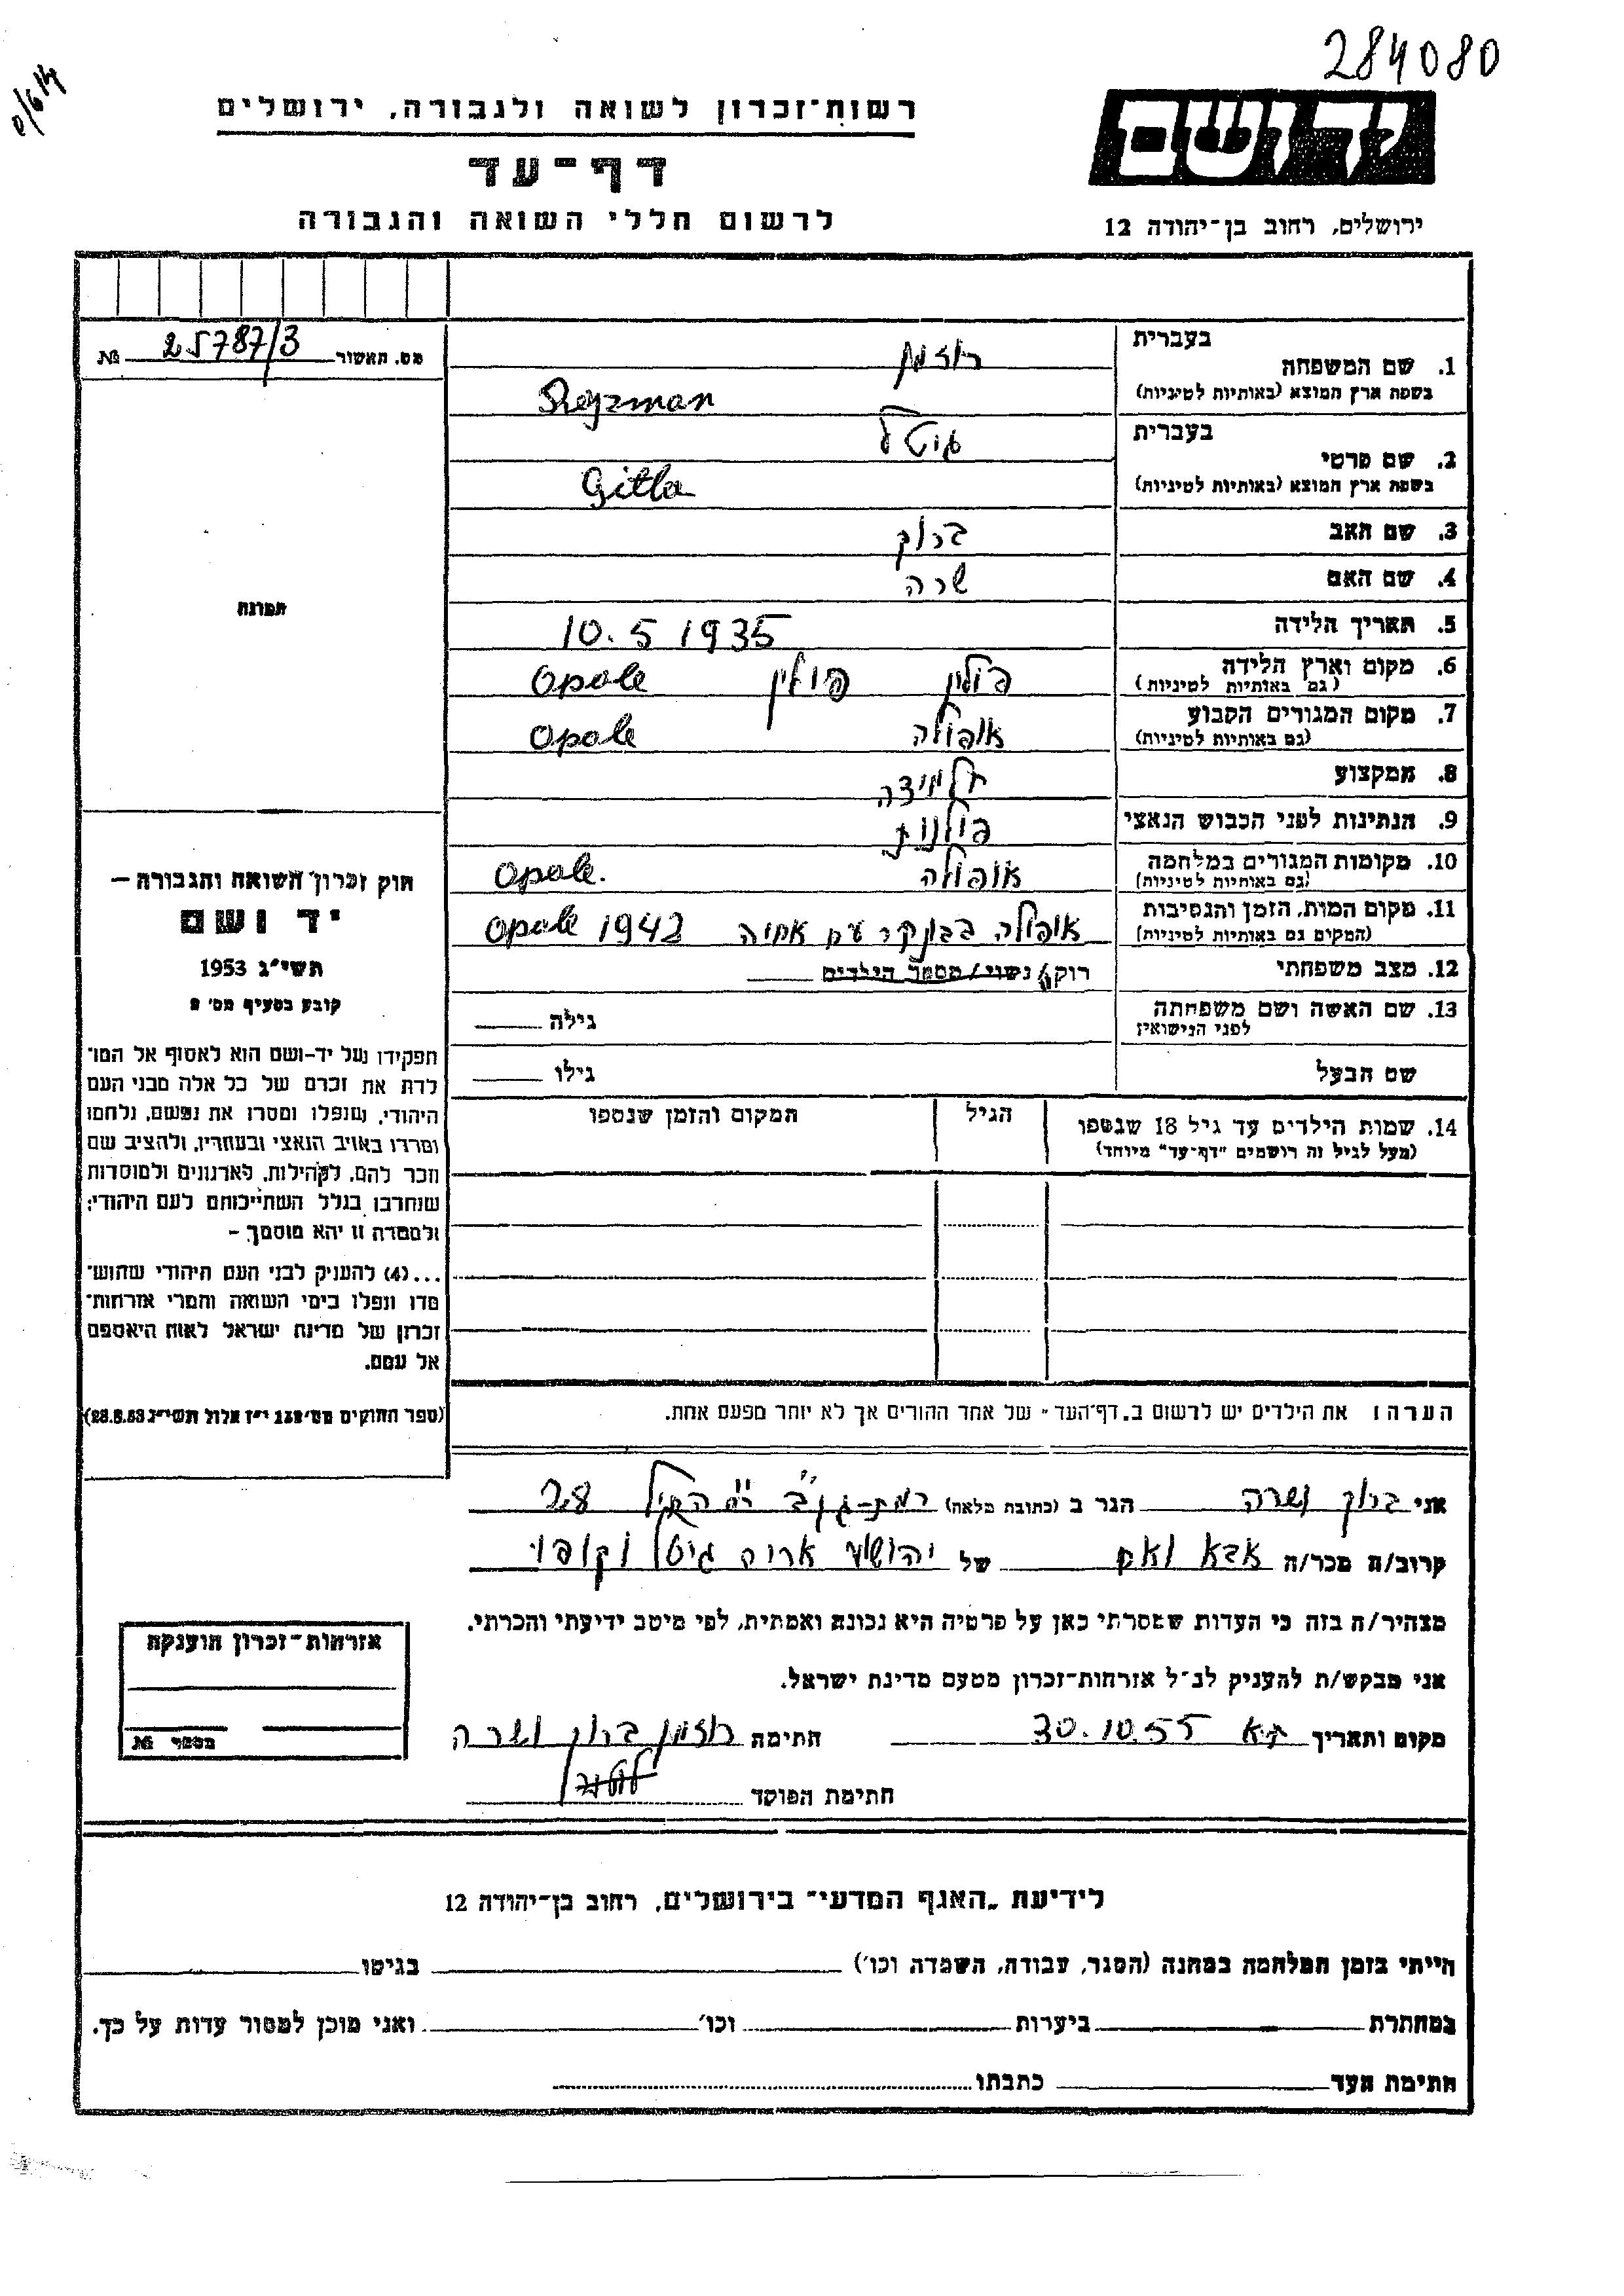 284080
רשות-זכרון לשואה ולגבורה, ירושלים
דף-עד
לרשום חללי השואה והגבורה
יד ושם
ירושלים, רחוב בן-יהודה 12
מס. האשור 25787/3 №
תמונה
חוק זכרון השואה והגבורה –
יד ושם
תשי"ג 1953
קובע בסעיף מס' 2
תפקידו של יד-ושם הוא לאסוף אל המו־
לדת את זכרם של כל אלה מבני העם
היהודי, שנפלו ומסרו את נפשם, נלחמו
ומרדו באויב הנאצי ובעוזריו, ולהציב שם
וזכר להם, לקהילות, לארגונים ולמוסדות
שנחרבו בגלל השתייכותם לעם היהודי;
ולמטרה זו יהא מוסמך –
...(4) להעניק לבני העם היהודי שהוש־
מדו ונפלו בימי השואה והמרי אזרחות־
זכרון של מדינת ישראל לאות היאספם
אל עמם.
(ספר החוקים מס' 132 י"ז אלול תשי"ג 28.8.53)
בעברית רוזמן
1. שם המשפחה
בשפת ארץ המוצא (באותיות לטיניות) Rejzman
בעברית גיטל
2. שם פרטי
בשפת ארץ המוצא (באותיות לטיניות) Gitla
3. שם האב ברוך
4. שם האם שרה
5. תאריך הלידה 10.5 1935
6. מקום וארץ הלידה פולין פולין Opole
(גם באותיות לטיניות)
7. מקום המגורים הקבוע אופולה Opole
(גם באותיות לטיניות)
8. המקצוע תלמידה
9. הנתינות לפני הכבוש הנאצי פולנית
10. מקומות המגורים במלחמה אופולה Opole.
(גם באותיות לטיניות)
11. מקום המות, הזמן והנסיבות אופולה בבונקר עם אחיה Opole 1942
(המקום גם באותיות לטיניות)
12. מצב משפחתי רוק/ נשוי/ מספר הילדים
13. שם האשה ושם משפחתה גילה
לפני הנישואין
שם הבעל גילו
14. שמות הילדים עד גיל 18 שנספו הגיל המקום והזמן שנספו
(מעל לגיל זה רושמים "דף-עד" מיוחד)
הערה: את הילדים יש לרשום ב"דף־העד" של אחד ההורים אך לא יותר מפעם אחת.
אני ברוך ושרה הגר ב (כתובת מלאה) רמת-גן 28
קרוב/ה מכר/ה אבא ואם של יהושע אריה גיטל וקופו
מצהיר/ה בזה כי העדות שמסרתי כאן על פרטיה היא נכונה ואמתית, לפי מיטב ידיעתי והכרתי.
אני מבקש/ת להעניק לנ"ל אזרחות-זכרון מטעם מדינת ישראל.
מקום ותאריך ת״א 30.10.55 חתימה רוזמן ברוך ושרה
חתימת הפוקד
אזרחות-זכרון הוענקה
מספר №
לידיעת "האגף המדעי" בירושלים, רחוב בן-יהודה 12
הייתי בזמן המלחמה במחנה (הסגר, עבודה, השמדה וכו') בגיטו
במחתרת ביערות וכו' ואני מוכן למסור עדות על כך.
חתימת העד כתבתו